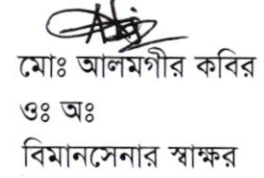 মোঃ আলমগীর কবির
ওঃ অঃ
বিমানসেনার স্বাক্ষর